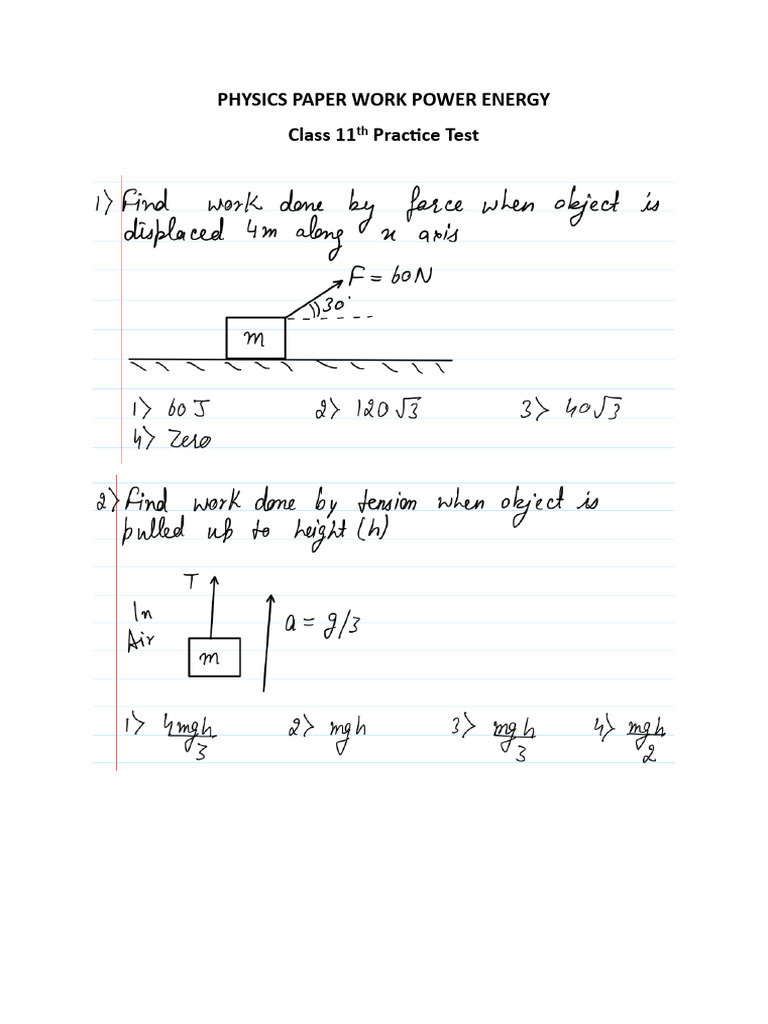 PHYSICS PAPER WORK POWER ENERGY
Class 11th Practice Test
1) Find work done by force when object is
displaced 4m along x axis
F = 60N
30°
m
1) 60 J 2) 120√3 3) 40√3
4) Zero
2) Find work done by tension when object is
pulled up to height (h)
T
In
Air
a = g/3
m
1) 4mgh/3 2) mgh 3) mgh/3 4) mgh/2